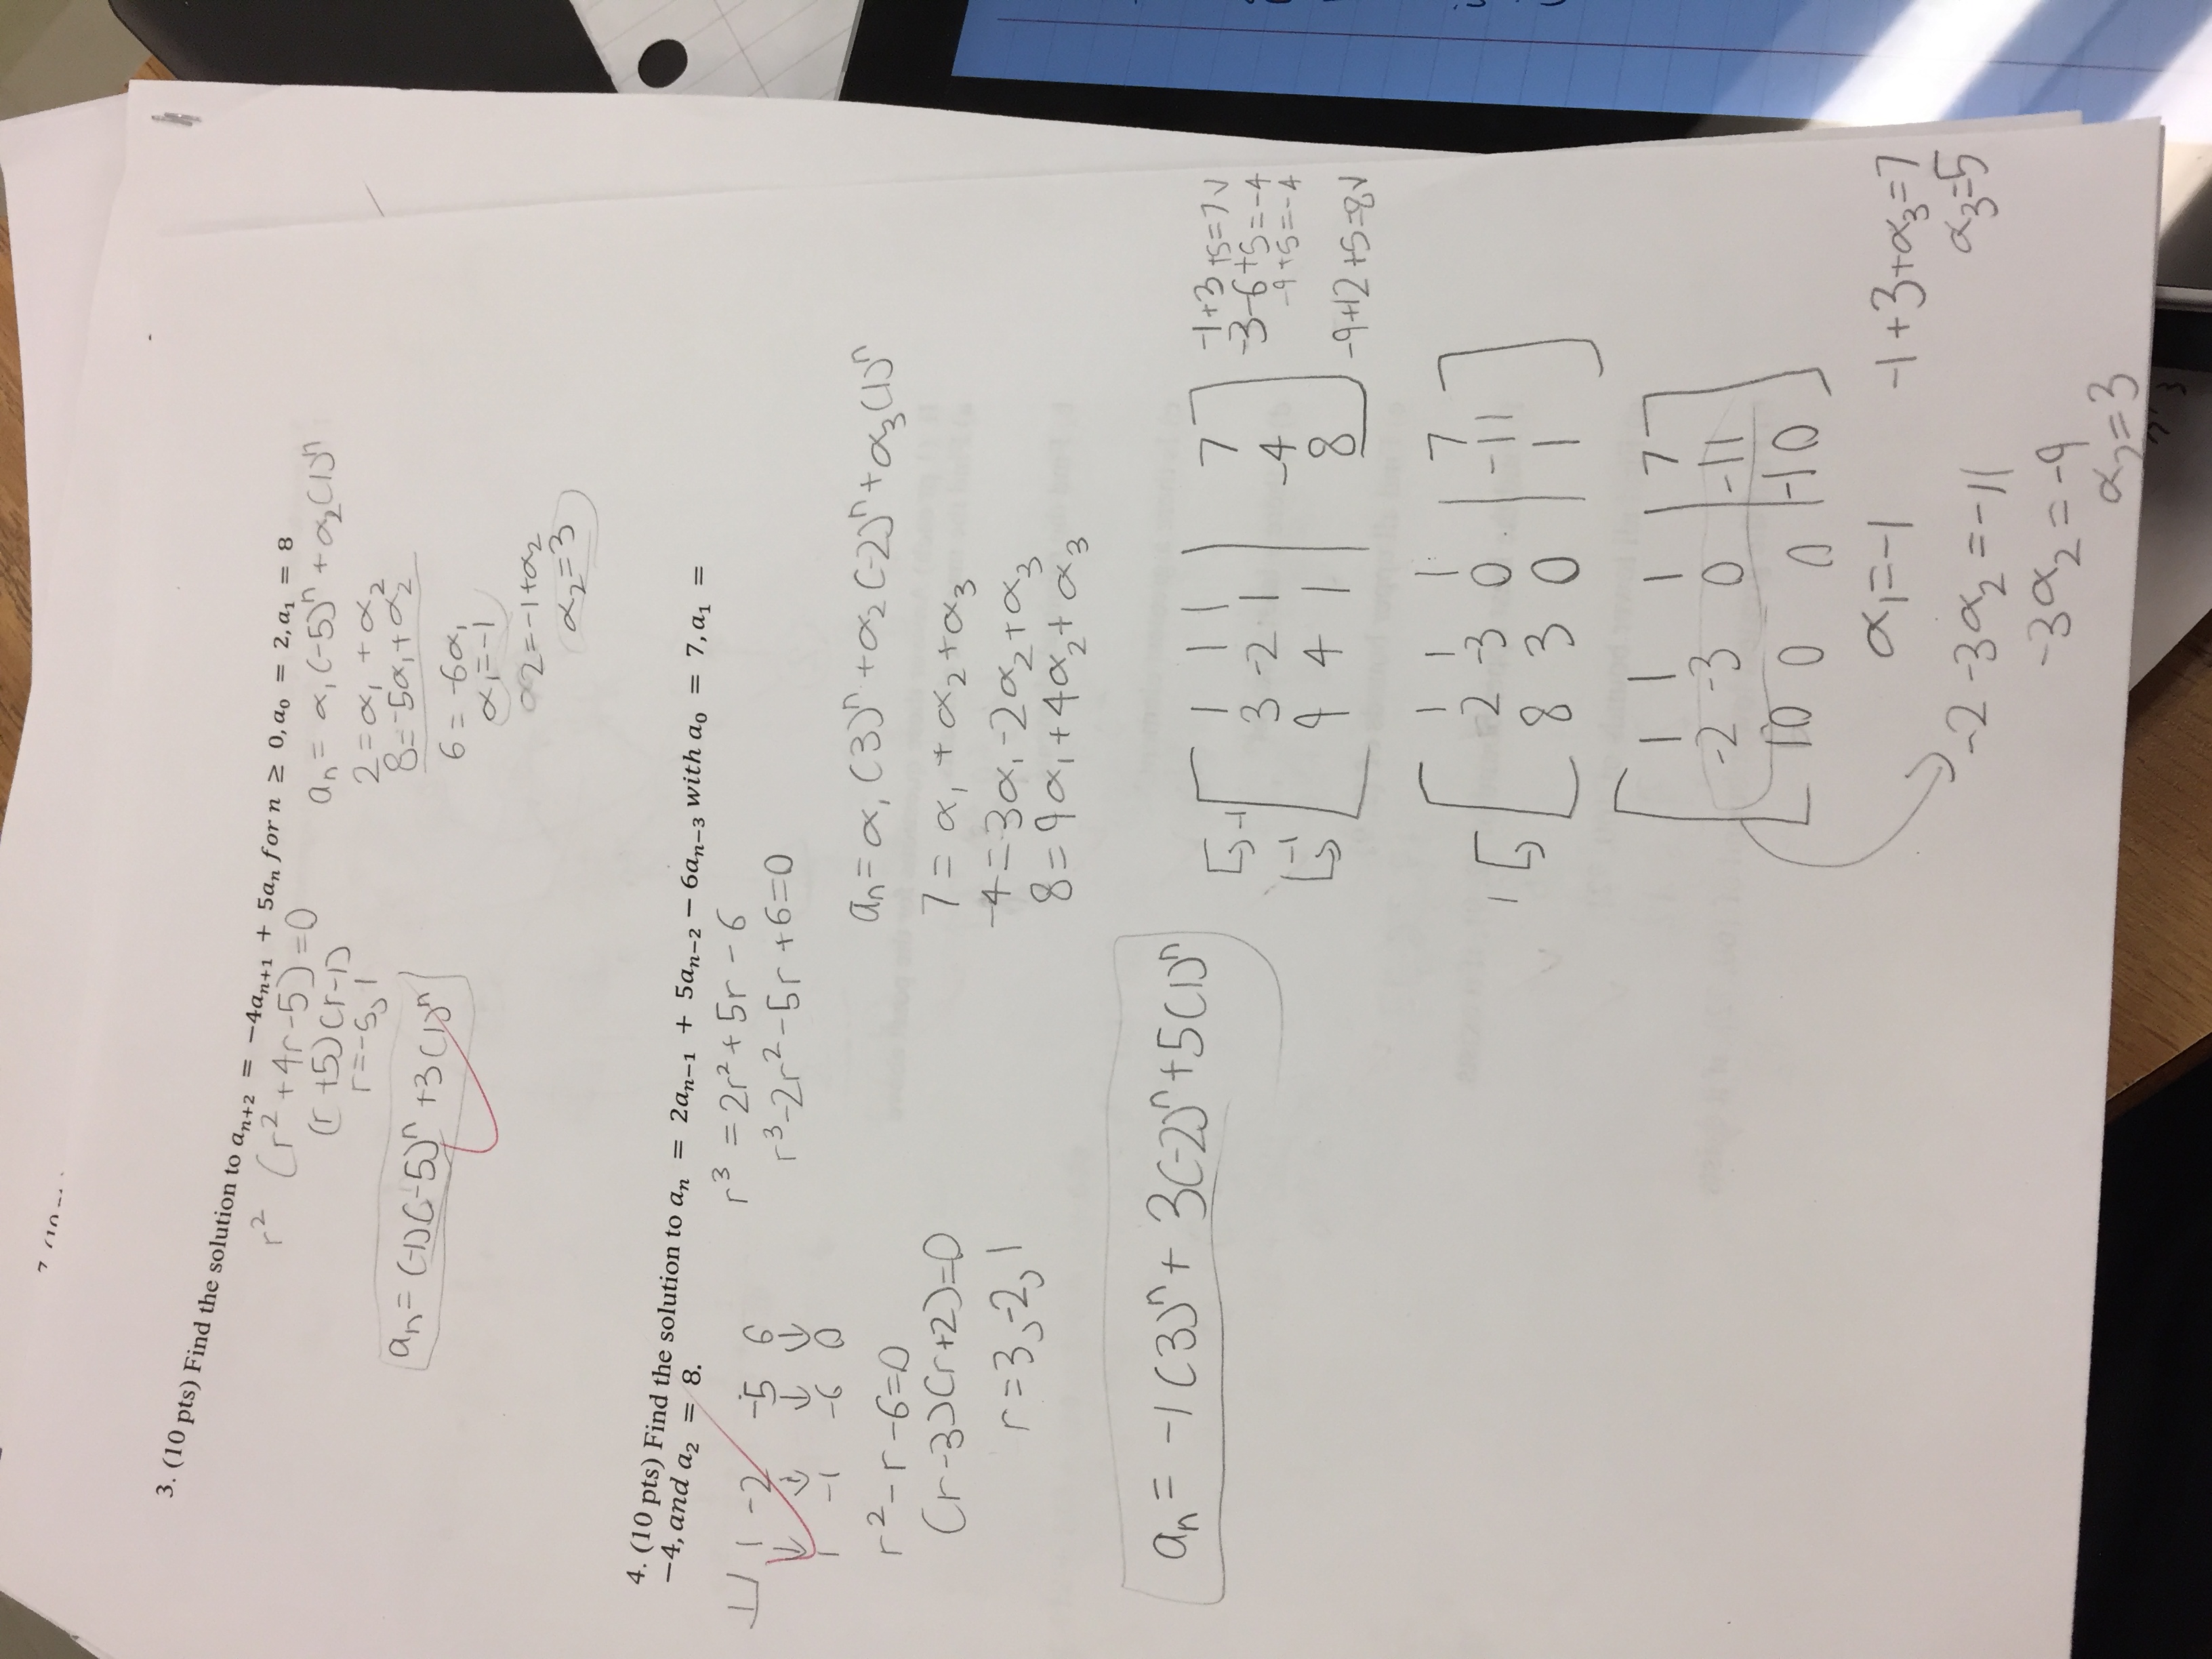 7 (10
3. (10 pts) Find the solution to aₙ₊₂ = −4aₙ₊₁ + 5aₙ for n ≥ 0, a₀ = 2, a₁ = 8
r² (r² + 4r - 5) = 0
(r + 5)(r - 1)
r = -5, 1
aₙ = (-1)(-5)ⁿ + 3(1)ⁿ
aₙ = α₁(-5)ⁿ + α₂(1)ⁿ
2 = α₁ + α₂
8 = -5α₁ + α₂
6 = -6α₁
α₁ = -1
2 = -1 + α₂
α₂ = 3
4. (10 pts) Find the solution to aₙ = 2aₙ₋₁ + 5aₙ₋₂ − 6aₙ₋₃ with a₀ = 7, a₁ =
−4, and a₂ = 8.
r³ = 2r² + 5r - 6
r³ - 2r² - 5r + 6 = 0
1 1 -2 -5 6
↓ ↓ ↓ ↓
1 -1 -6 0
r² - r - 6 = 0
(r - 3)(r + 2) = 0
r = 3, -2, 1
aₙ = α₁(3)ⁿ + α₂(-2)ⁿ + α₃(1)ⁿ
7 = α₁ + α₂ + α₃
-4 = 3α₁ - 2α₂ + α₃
8 = 9α₁ + 4α₂ + α₃
aₙ = -1(3)ⁿ + 3(-2)ⁿ + 5(1)ⁿ
1 1 1 | 7
-1 3 -2 1 | -4
-1 9 4 1 | 8
-1 + 3 + 5 = 7 ✓
-3 - 6 + 5 = -4
-9 + 5 = -4
-9 + 12 + 5 = 8 ✓
1 1 1 | 7
2 -3 0 | -11
1 8 3 0 | 1
1 1 1 | 7
-2 -3 0 | -11
10 0 0 | -10
α₁ = -1
-2 - 3α₂ = -11
-3α₂ = -9
α₂ = 3
-1 + 3 + α₃ = 7
α₃ = 5